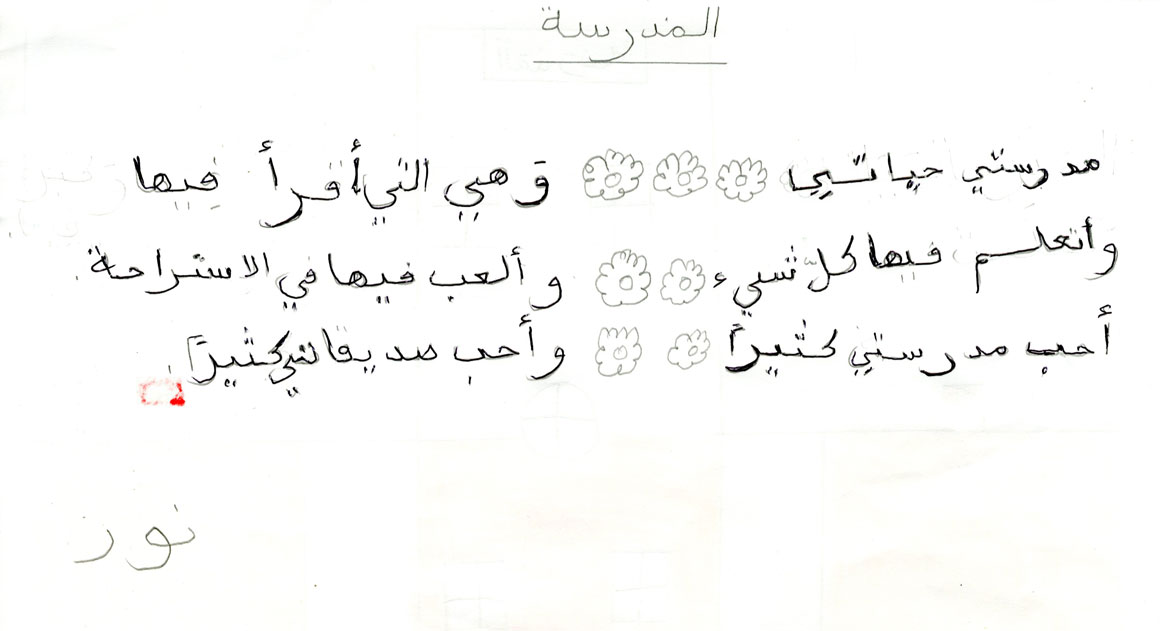 المدرسة
مدرستي حياتي وهي التي أقرأ فيها
وأتعلم فيها كل شيء وألعب فيها في الاستراحة
أحب مدرستي كثيرًا وأحب صديقاتي كثيرًا.
نور